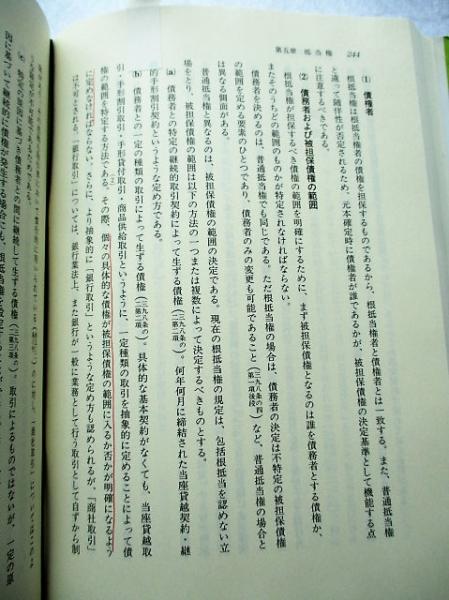 第五章 抵当権
244
(1) 債権者
根抵当権は根抵当権者の債権を担保するものであるから、根抵当権者と債権者とは一致する。また、普通抵当権
と違って随伴性が否定されるため、元本確定時に債権者が誰であるかが、被担保債権の決定基準として機能する点
に注意するべきである。
(2) 債務者および被担保債権の範囲
根抵当権が担保するべき債権の範囲を明確にするために、まず被担保債権となるのは誰を債務者とする債権か、
またそのうちどの範囲のものかが特定されなければならない。
債務者を決めるのは、普通抵当権でも同じである。ただ根抵当権の場合は、債務者の決定は不特定の被担保債権
の範囲を定める要素のひとつであり、債務者のみの変更も可能であること(三九八条の四第一項後段)など、普通抵当権の場合と
は異なる側面がある。
普通抵当権と異なるのは、被担保債権の範囲の決定である。現在の根抵当権の規定は、包括根抵当を認めない立
場をとり、被担保債権の範囲は以下の方法の一つまたは複数によって決定するべきものとする。
(a) 債務者との特定の継続的取引契約によって生ずる債権(三九八条の二第二項)。何年何月に締結された当座貸越契約・継
続的手形割引契約というような定め方である。
(b) 債務者との一定の種類の取引によって生ずる債権(三九八条の二第二項)。具体的な基本契約がなくても、当座貸越取
引・手形割引取引・手形貸付取引・商品供給取引というように、一定種類の取引を抽象的に定めることによって債
権の範囲を特定する方法である。その際、個々の具体的な債権が被担保債権の範囲に入るか否かが明確になるよう
に定めなければならない。さらに、より抽象的に「銀行取引」というような定め方も認められるが、「商社取引」
は不可とされる。「銀行取引」については、銀行業法上、また銀行が一般に業務として行う取引として自ずから制
(c) 特定の原因に基づき債務者との間に継続して生ずる債権(三九八条の二第三項)。取引によるものではないが、一定の原
因に基づいて継続的に債権が発生する場合にも、根抵当権を設定